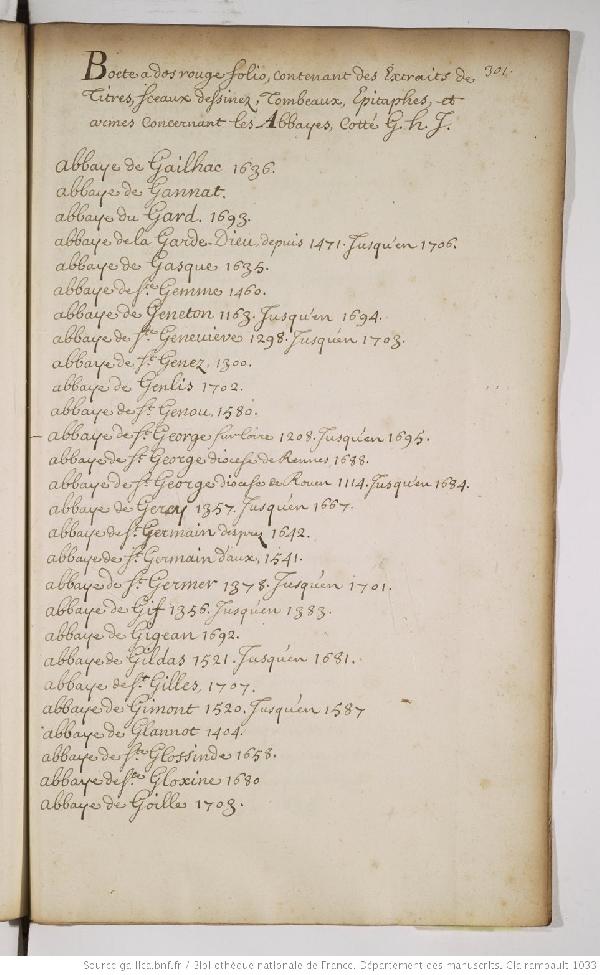 Boete a dos rouge folio, contenant des Extraits de 301.
Titres, sceaux dessinez, Tombeaux, Epitaphes, et
armes concernant les Abbayes, Cotté G. h. J.
abbaye de Gailhac 1636.
abbaye de Gannat.
abbaye du Gard. 1693.
abbaye de la Garde-Dieu, depuis 1471. Jusqu'en 1706.
abbaye de Gasque 1635.
abbaye de Ste. Gemme 1460.
abbaye de Geneton 1163. Jusqu'en 1694.
abbaye de Ste. Genevieve 1298. Jusqu'en 1703.
abbaye de St. Genez, 1300.
abbaye de Genlis 1702.
abbaye de St. Genou, 1580.
abbaye de St. George sur Loire 1208. Jusqu'en 1695.
abbaye de St. George diocese de Rennes 1688.
abbaye de St. George diocese de Rouen 1114. Jusqu'en 1684.
abbaye de Gercy 1357. Jusqu'en 1667.
abbaye de St. Germain desprez 1642.
abbaye de St. Germain d'aux, 1541.
abbaye de St. Germer 1378. Jusqu'en 1701.
abbaye de Gif 1356. Jusqu'en 1383.
abbaye de Gigean 1692.
abbaye de Gildas 1521. Jusqu'en 1681.
abbaye de St. Gilles, 1707.
abbaye de Gimont 1520. Jusqu'en 1587
abbaye de Glannot 1404.
abbaye de Ste. Glossinde 1658.
abbaye de Ste. Gloxine 1680
abbaye de Goille 1703.
Source gallica.bnf.fr / Bibliothèque nationale de France. Département des manuscrits. Clairambault 1033